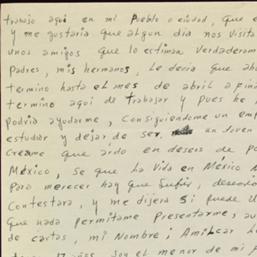 trabajo aquí en mi Pueblo o ciudad, que e
y me gustaria que algun dia nos visita
unos amigos que lo estiman verdaderam
Padres, mis hermanos, Le decia que ab
termino hasta el mes de abril a fina
termino aqui de trabajar y pues he
podria ayudarme, Consiguiendome un emp
estudiar y dejar de ser un Joven
Creame que ardo en deseos de po
México, se que La Vida en México N
Pero merecer hay que Sufrir, deseando
Contestara, y me dijera si puede U
Que nada permitame Presentarme, au
de cartas, mi Nombre: Amilcar L
Son el menor de mi